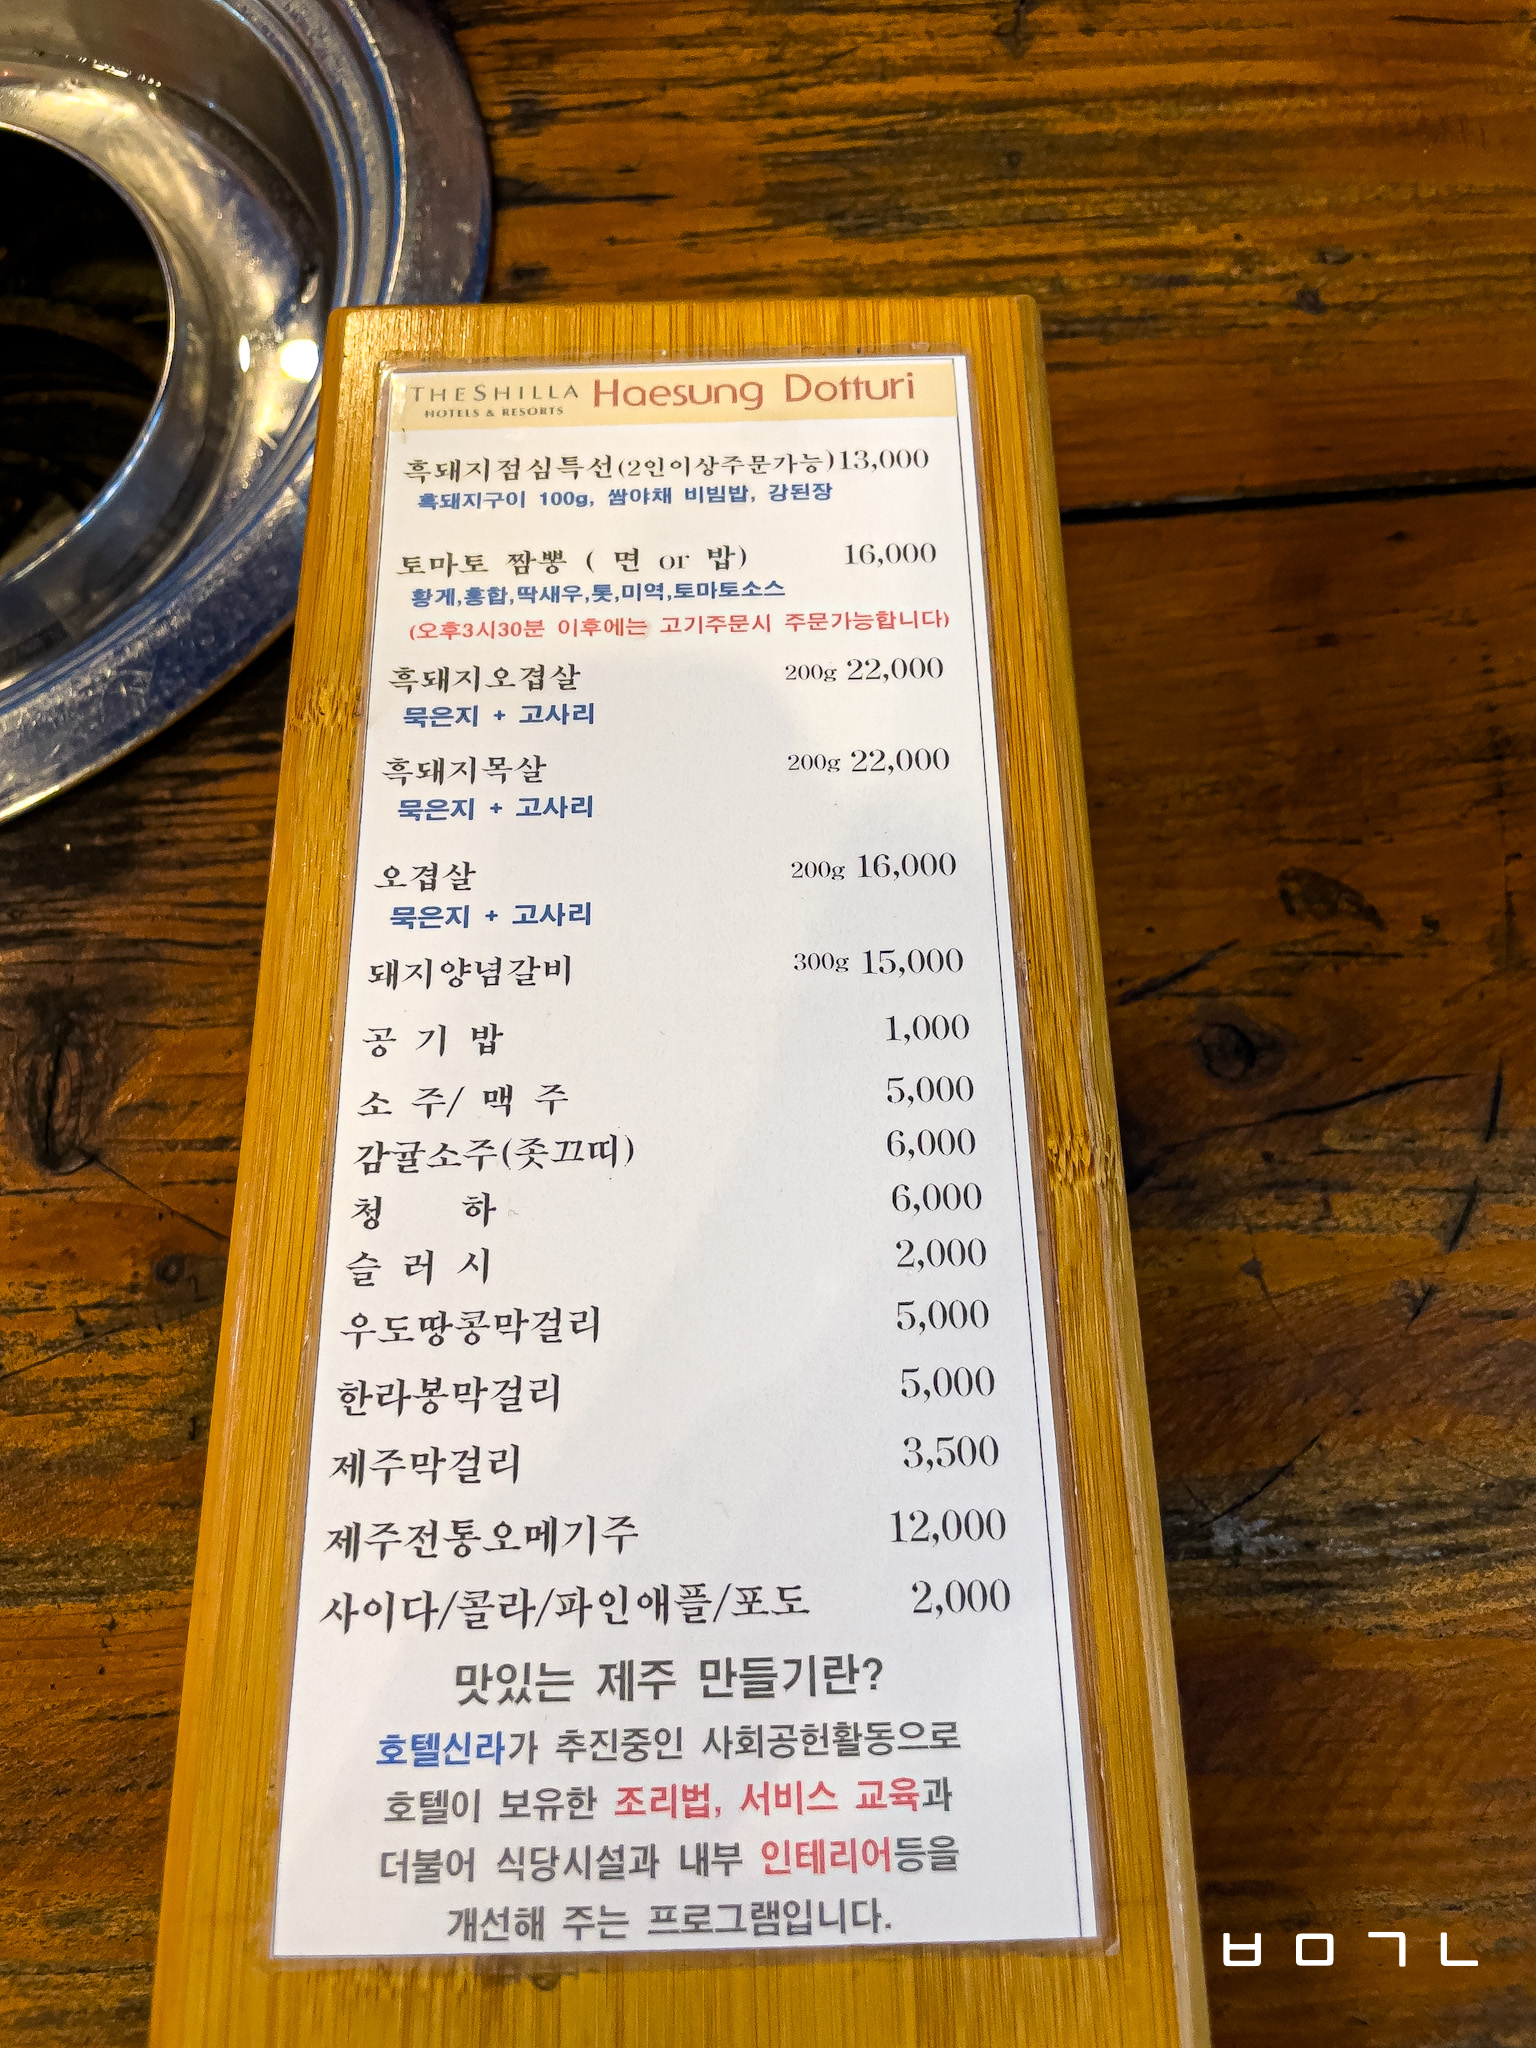 THE SHILLA Haesung Dotturi
HOTELS & RESORTS
흑돼지점심특선(2인이상주문가능)13,000
흑돼지구이 100g, 쌈야채 비빔밥, 강된장
토마토 짬뽕 ( 면 or 밥) 16,000
황게,홍합,딱새우,톳,미역,토마토소스
(오후3시30분 이후에는 고기주문시 주문가능합니다)
흑돼지오겹살 200g 22,000
묵은지 + 고사리
흑돼지목살 200g 22,000
묵은지 + 고사리
오겹살 200g 16,000
묵은지 + 고사리
돼지양념갈비 300g 15,000
공 기 밥 1,000
소 주/ 맥 주 5,000
감귤소주(좃끄띠) 6,000
청 하 6,000
슬 러 시 2,000
우도땅콩막걸리 5,000
한라봉막걸리 5,000
제주막걸리 3,500
제주전통오메기주 12,000
사이다/콜라/파인애플/포도 2,000
맛있는 제주 만들기란?
호텔신라가 추진중인 사회공헌활동으로
호텔이 보유한 조리법, 서비스 교육과
더불어 식당시설과 내부 인테리어등을
개선해 주는 프로그램입니다.
ㅂㅁㄱㄴ